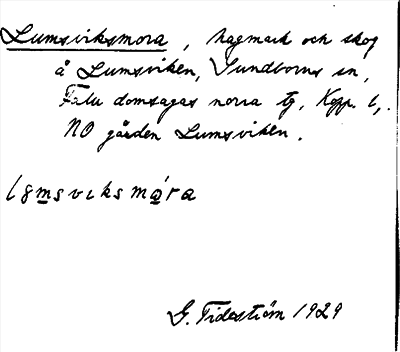 Lumsviksmora, hagmark och skog
å Lumsviken, Sundborns sn,
Falu domsagas norra tg, Kopp. l.,
NO gården Lumsviken.
l8msviksmǻra
G. Tideström 1929